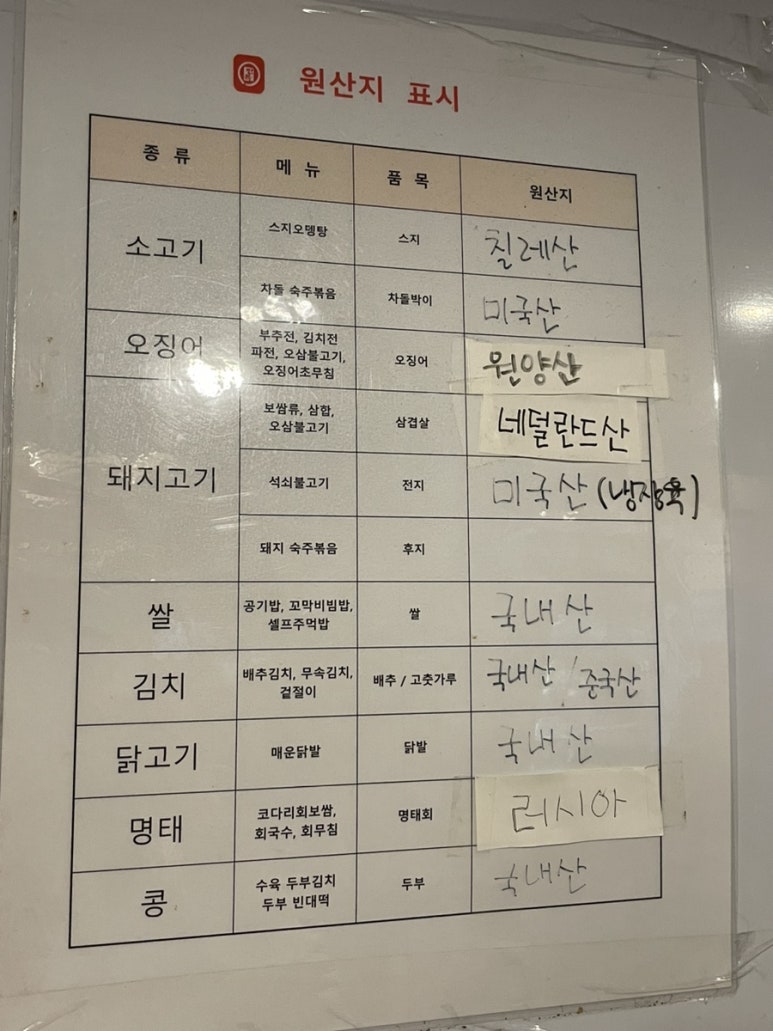 원산지 표시
종 류 메 뉴 품 목 원산지
소고기
스지오뎅탕 스지 칠레산
차돌 숙주볶음 차돌박이 미국산
오징어
부추전, 김치전
파전, 오삼불고기,
오징어초무침
오징어 원양산
돼지고기
보쌈류, 삼합,
오삼불고기
삼겹살 네덜란드산
석쇠불고기 전지 미국산 (냉장육)
돼지 숙주볶음 후지
쌀
공기밥, 꼬막비빔밥,
셀프주먹밥
쌀 국내산
김치
배추김치, 무속김치,
겉절이
배추 / 고춧가루 국내산 / 중국산
닭고기 매운닭발 닭발 국내산
명태
코다리회보쌈,
회국수, 회무침
명태회 러시아
콩
수육 두부김치
두부 빈대떡
두부 국내산